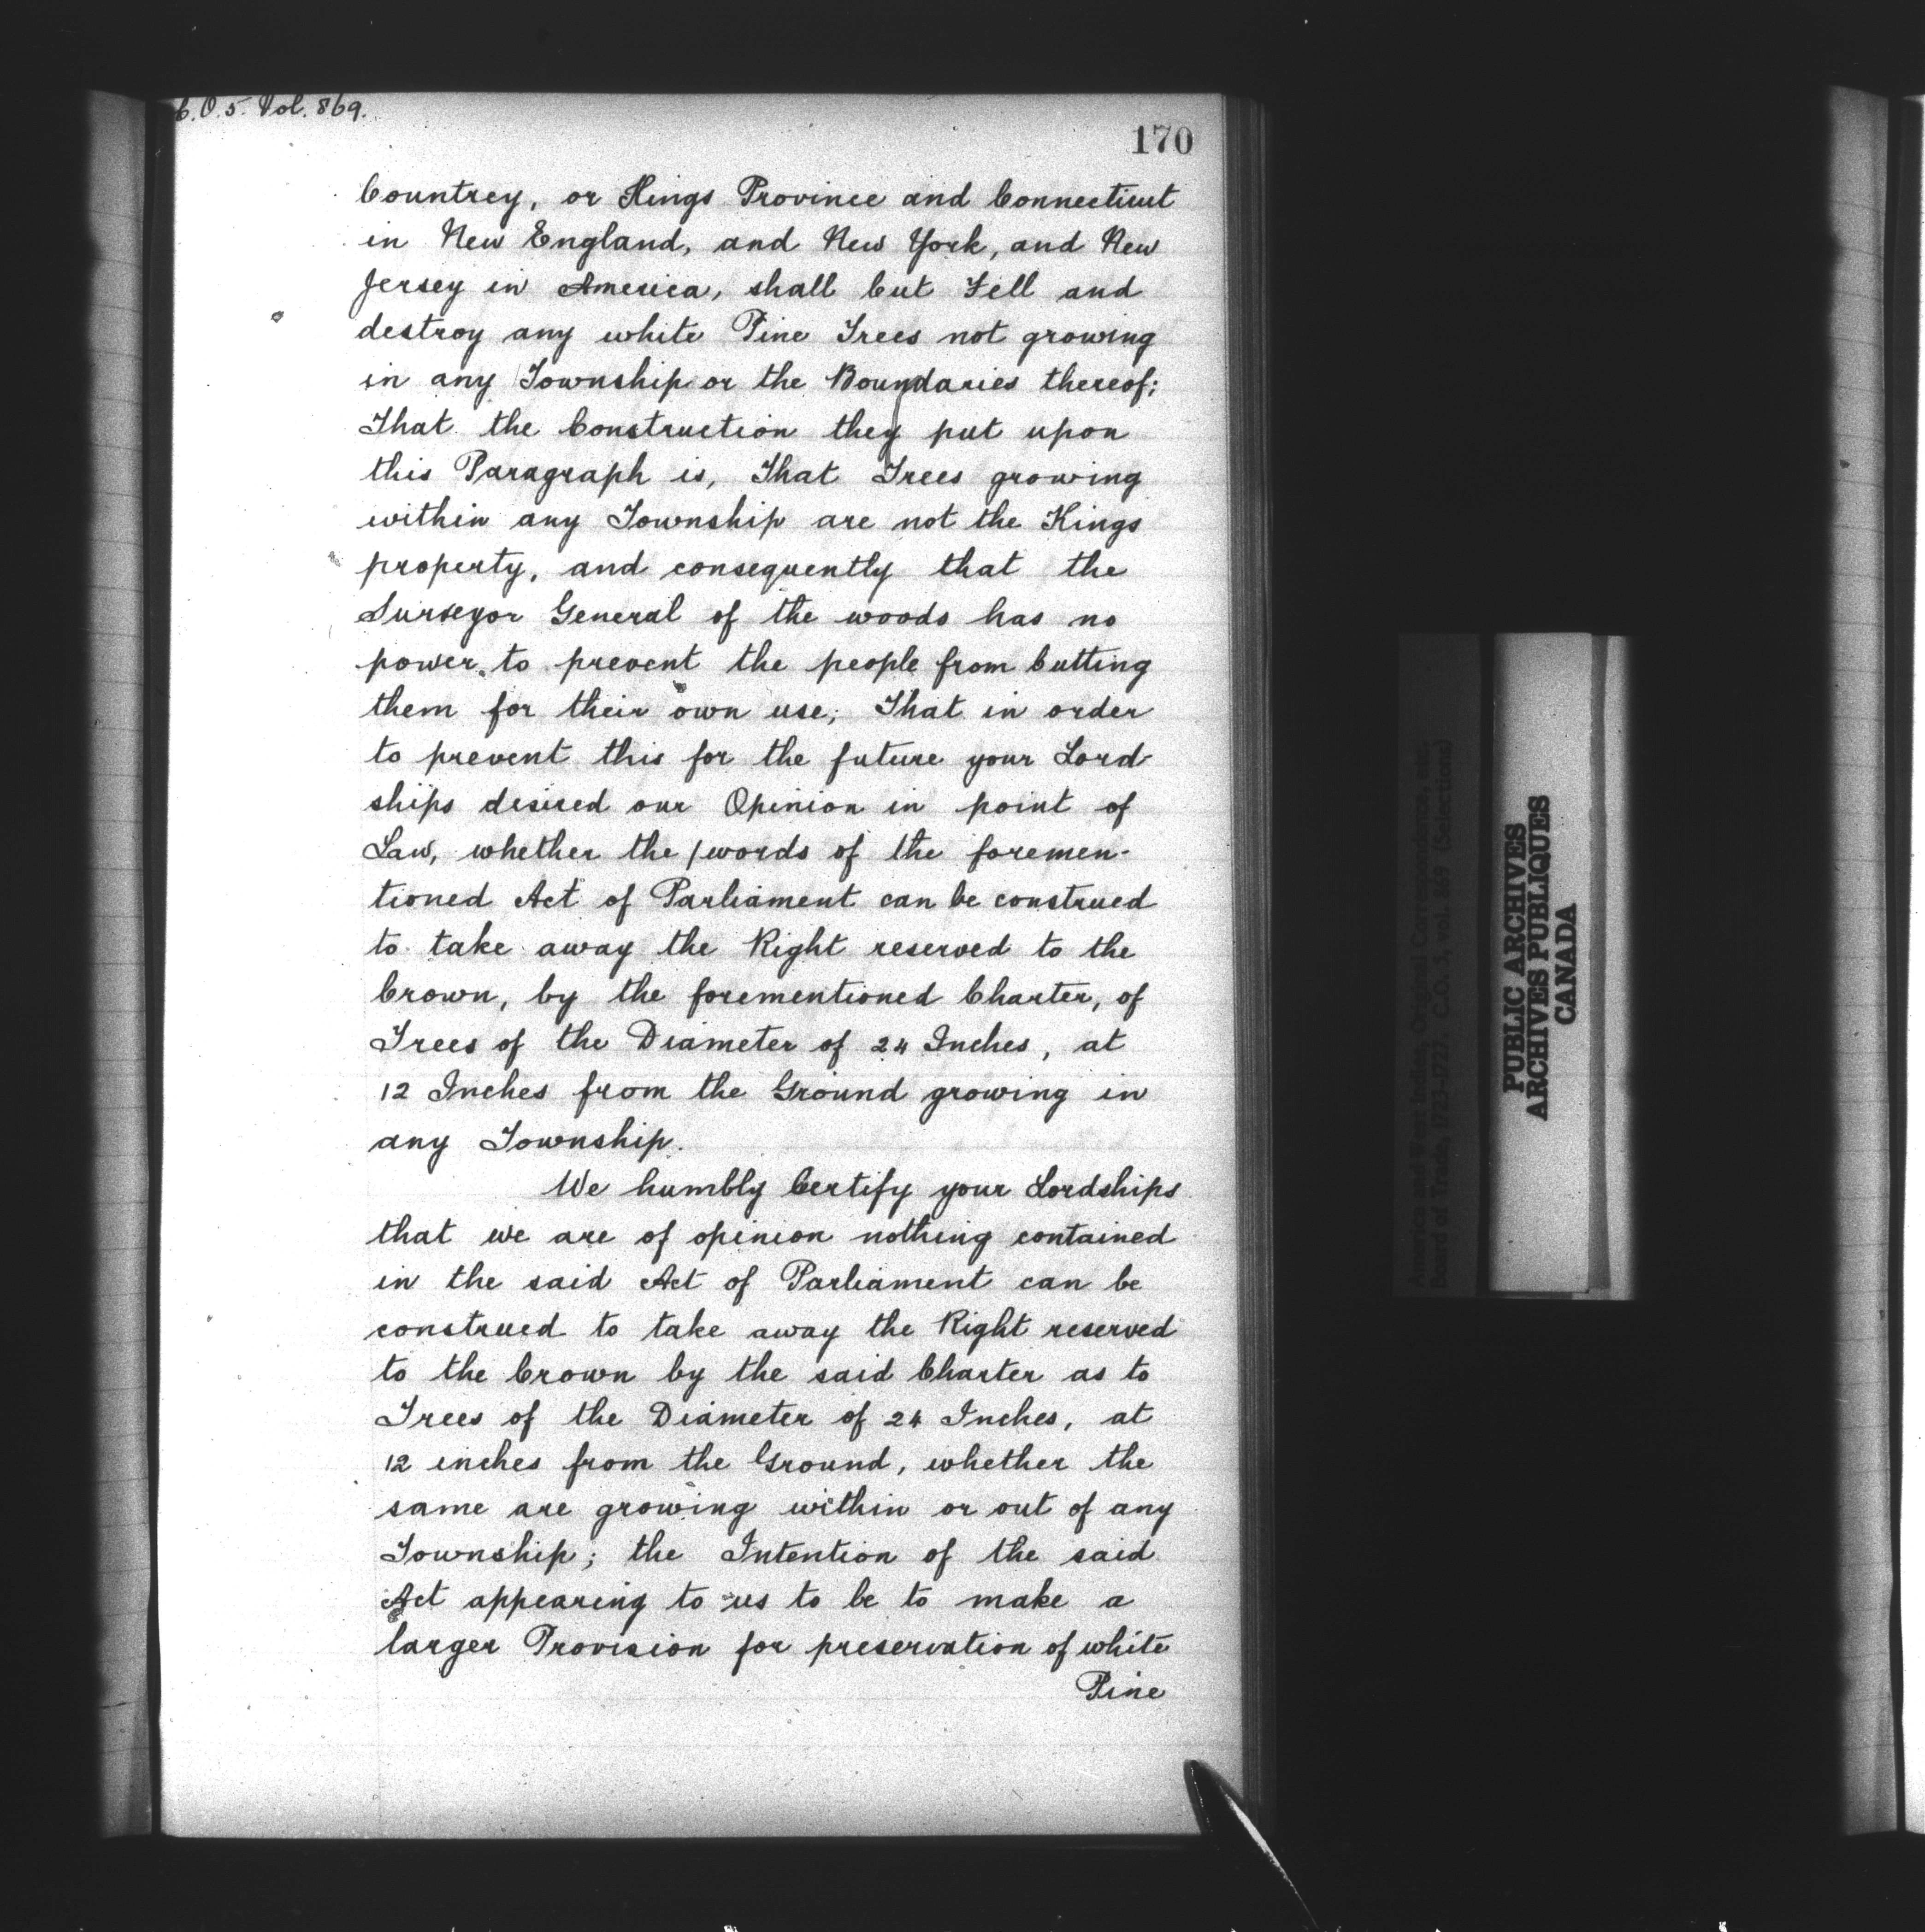 C.O.5. Vol. 869.
170
Countrey, or Kings Province and Connecticut
in New England, and New York, and New
Jersey in America, shall Cut Fell and
destroy any white Pine Trees not growing
in any Township or the Boundaries thereof;
That the Construction they put upon
this Paragraph is, That Trees growing
within any Township are not the Kings
property, and consequently that the
Surveyor General of the woods has no
power to prevent the people from Cutting
them for their own use; That in order
to prevent this for the future your Lord-
ships desired our Opinion in point of
Law, whether the words of the foremen-
tioned Act of Parliament can be construed
to take away the Right reserved to the
Crown, by the forementioned Charter, of
Trees of the Diameter of 24 Inches, at
12 Inches from the Ground growing in
any Township.
We humbly Certify your Lordships
that we are of opinion nothing contained
in the said Act of Parliament can be
construed to take away the Right reserved
to the Crown by the said Charter as to
Trees of the Diameter of 24 Inches, at
12 inches from the Ground, whether the
same are growing within or out of any
Township; the Intention of the said
Act appearing to us to be to make a
larger Provision for preservation of white
Pine
America and West Indies, Original Correspondence, etc.
Board of Trade, 1723-1727. C.O. 5, vol. 869 (Selections)
PUBLIC ARCHIVES
ARCHIVES PUBLIQUES
CANADA